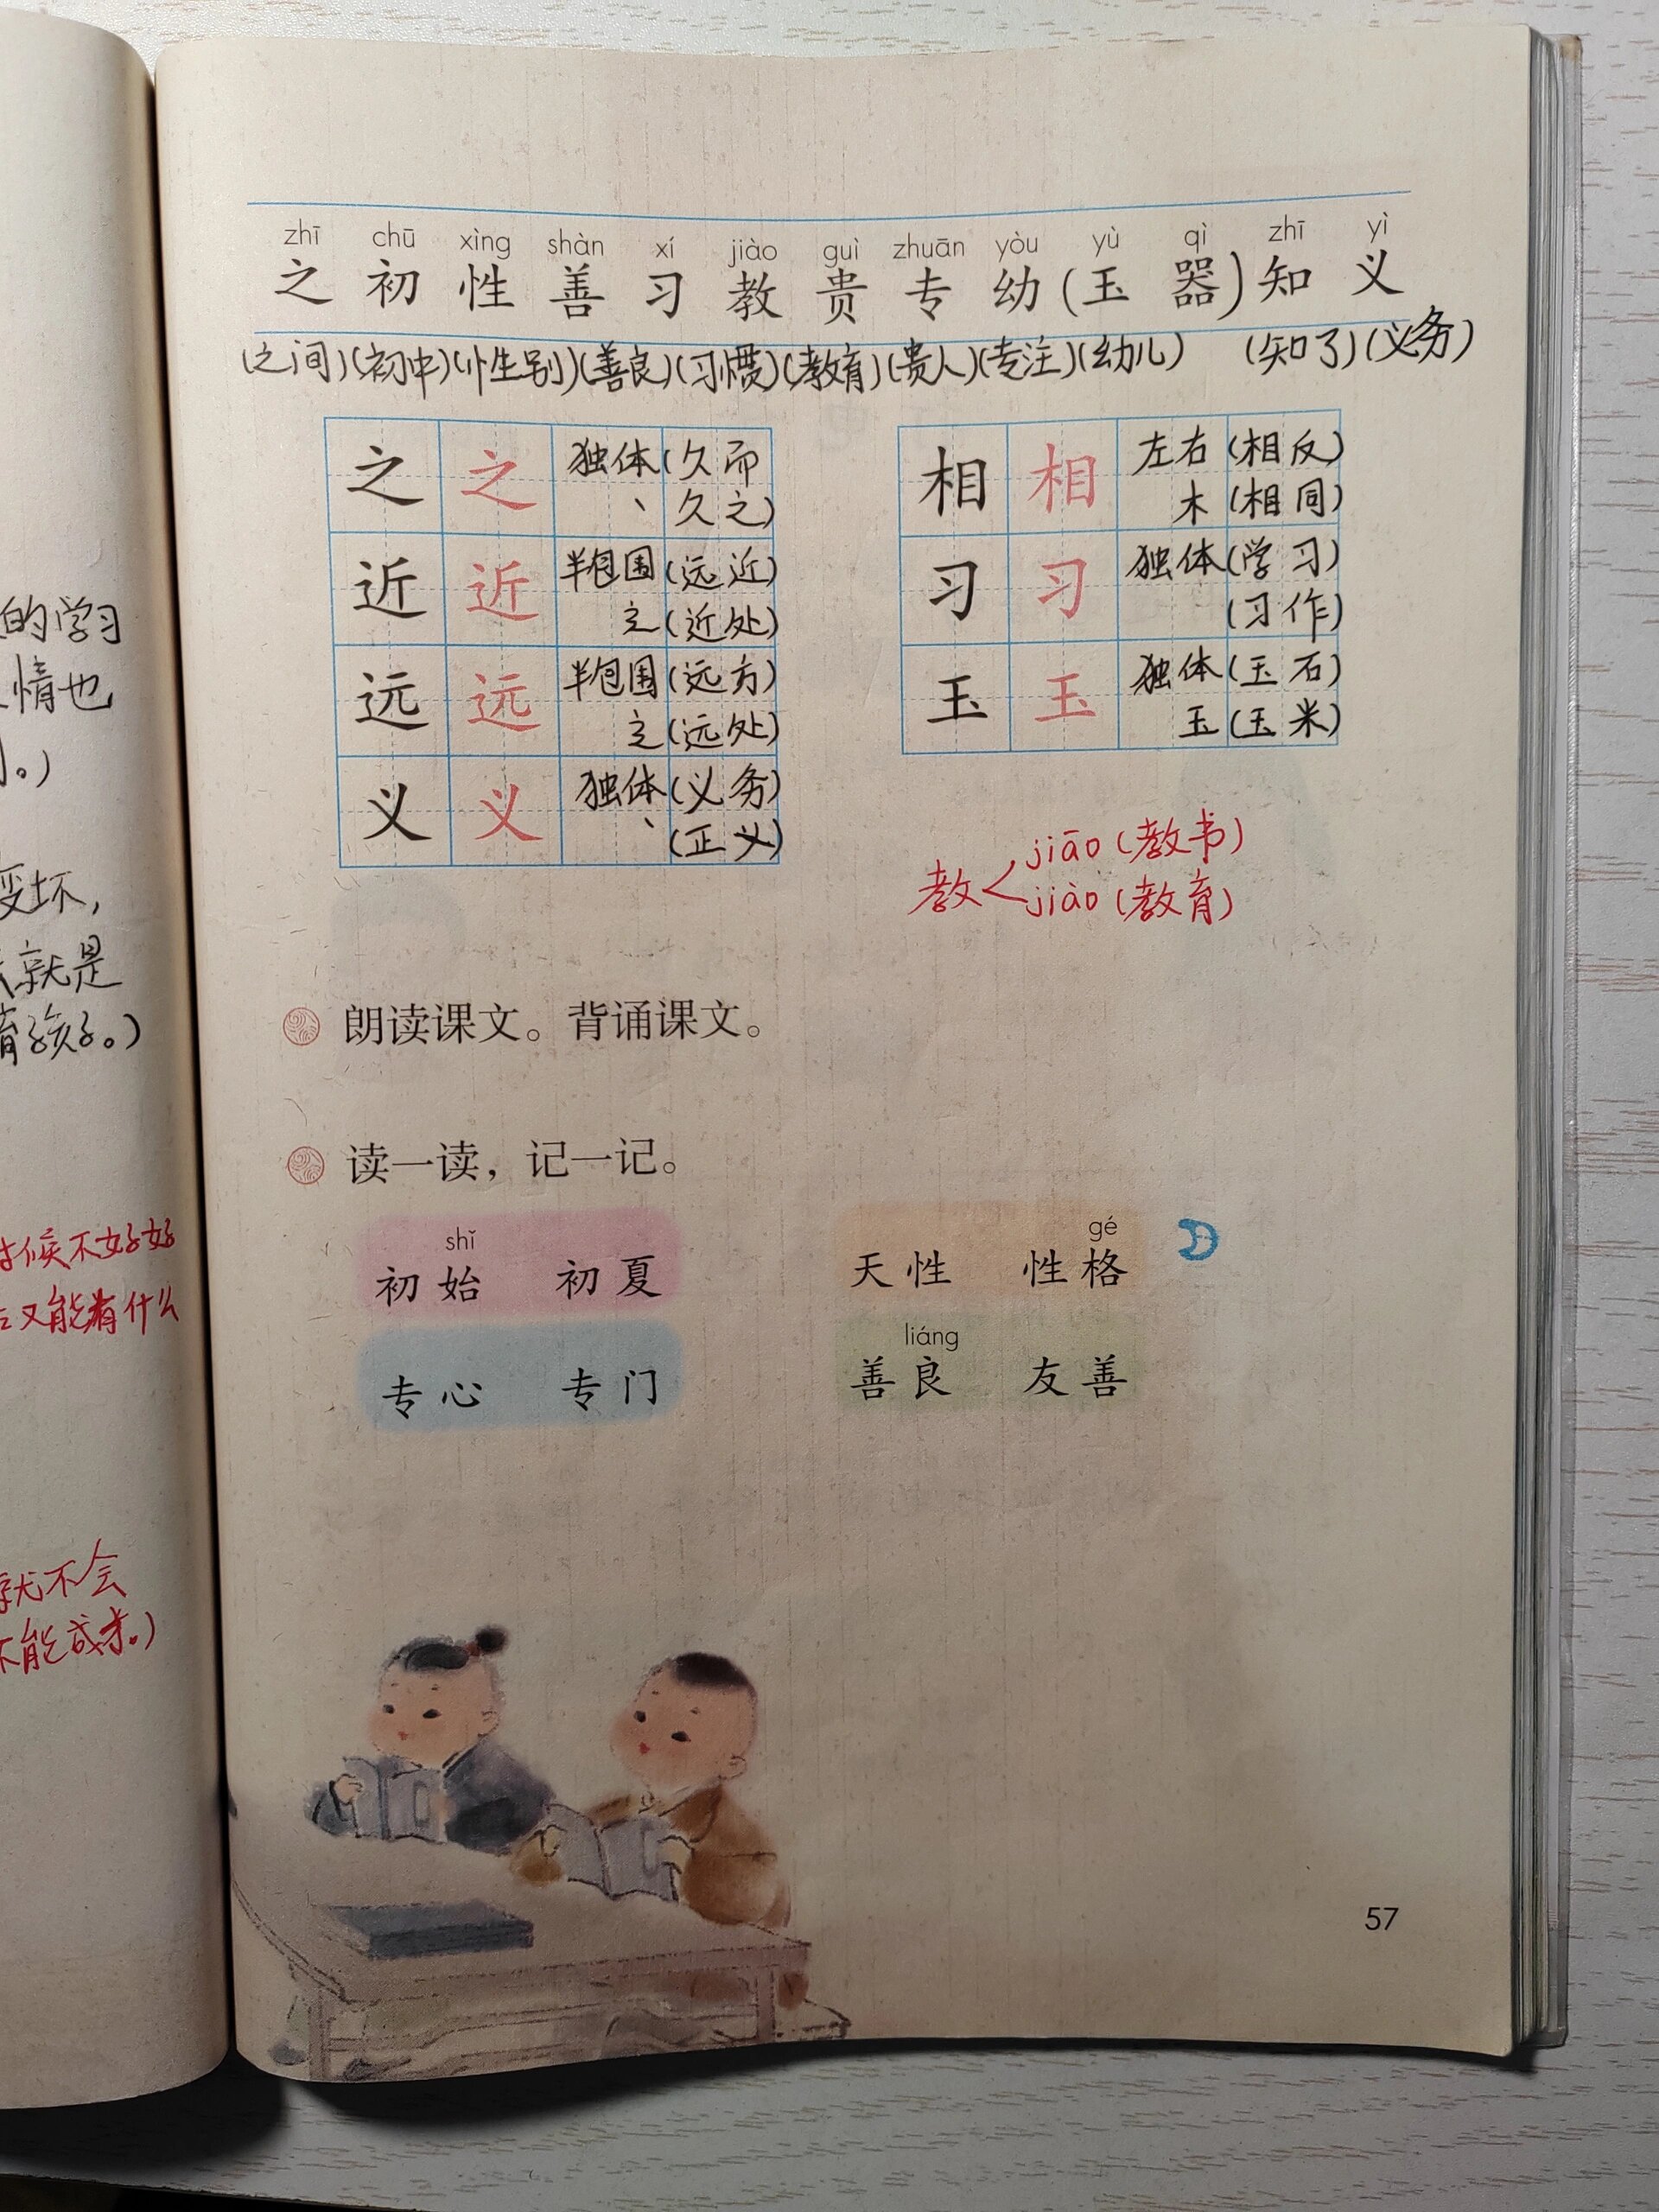 的学习
情也
。)
变坏,
就是
育孩子。)
候不好好
又能有什么
就不会
不能成来。)
zhī chū xìng shàn xí jiào guì zhuān yòu yù qì zhī yì
之 初 性 善 习 教 贵 专 幼(玉 器)知 义
(之间)(初中)(性别)(善良)(习惯)(教育)(贵人)(专注)(幼儿) (知了)(义务)
之 之 独体(久而
丶 久之)
近 近 半包围(远近)
辶(近处)
远 远 半包围(远方)
辶(远处)
义 义 独体(义务)
丶(正义)
相 相 左右(相反)
木(相同)
习 习 独体(学习)
(习作)
玉 玉 独体(玉石)
玉(玉米)
教<jiāo(教书)
jiào(教育)
朗读课文。背诵课文。
读一读，记一记。
shǐ
初始 初夏
gé
天性 性格
专心 专门
liáng
善良 友善
57